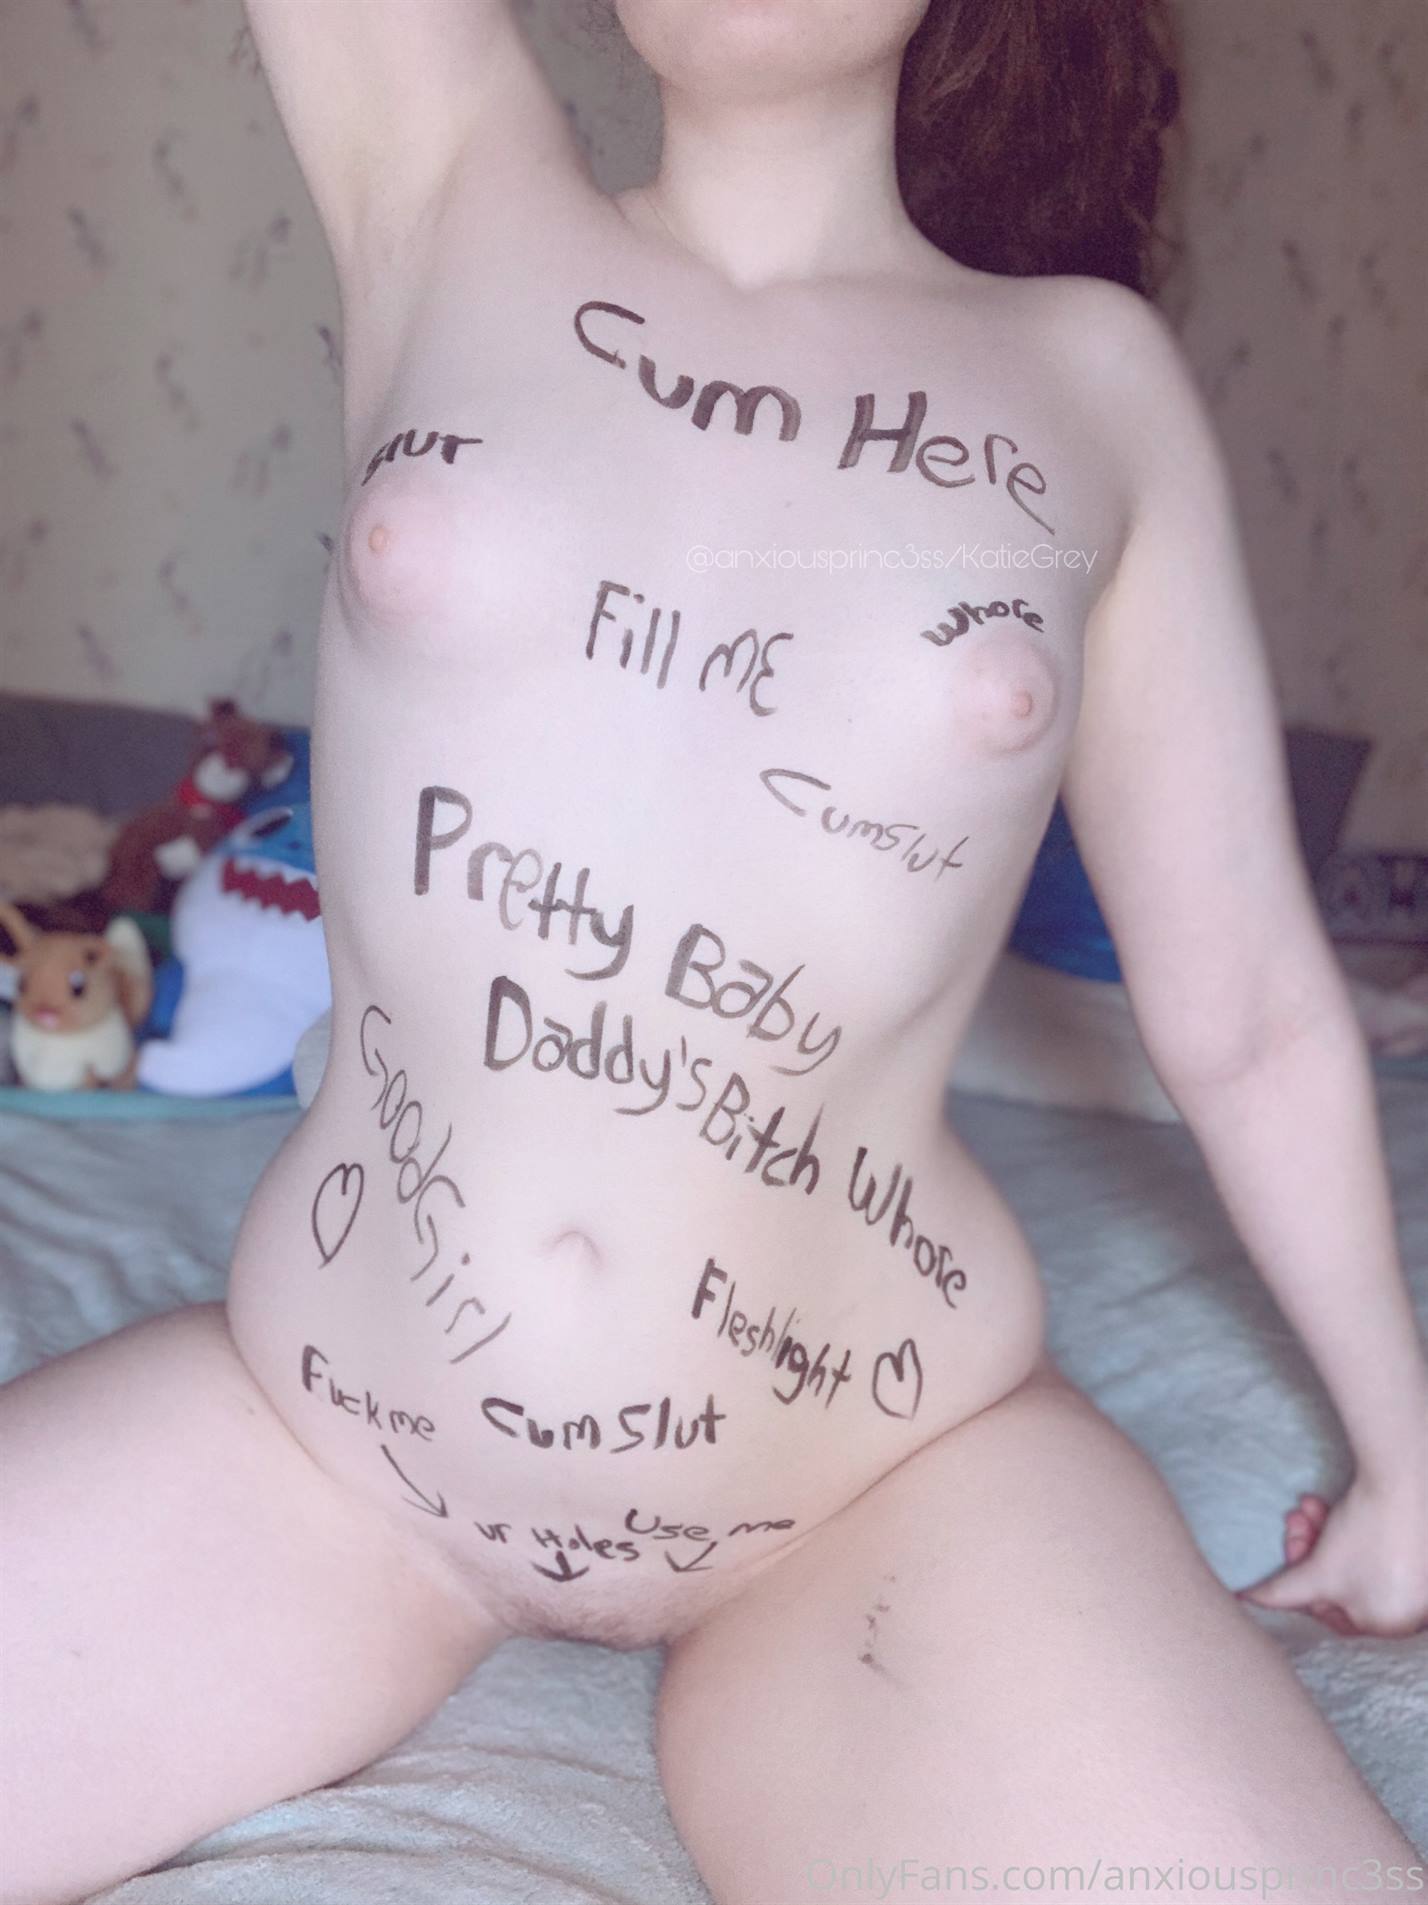 Cum Here
slut
@anxiousprinc3ss/KatieGrey
Fill ME
Whore
Cumslut
Pretty Baby
Daddy's Bitch Whore
Good Girl
Fleshlight
Fuck me
Cum Slut
ur Holes
Use me
OnlyFans.com/anxiousprinc3ss